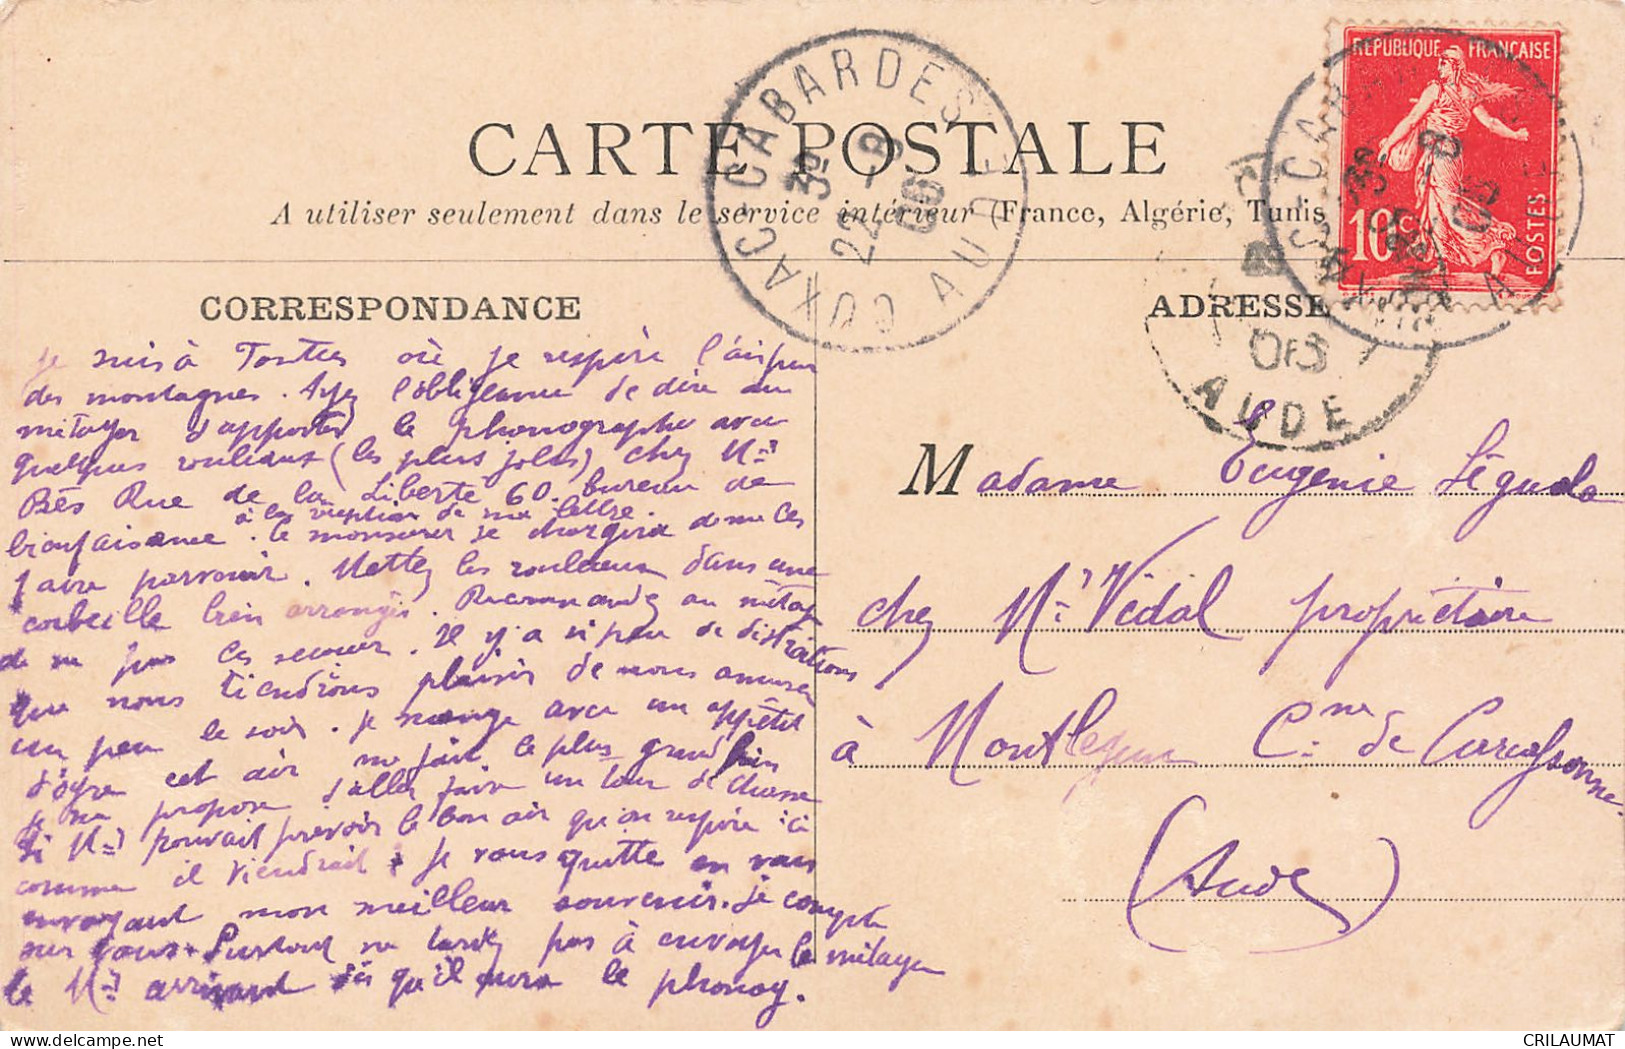 CARTE POSTALE
A utiliser seulement dans le service intérieur (France, Algérie, Tunis
CORRESPONDANCE
ADRESSE
REPUBLIQUE FRANÇAISE
10 c.
POSTES
CUXAC-CABARDES
3E
22 -8
06
AUDE
06
AUDE
je suis à Fontiès où je respire l'air pur
des montagnes. Ayez l'obligeance de dire au
métayer d'apporter le phonographe avec
quelques rouleaux (les plus jolis) chez Mr
Bès Rue de la Liberté 60. bureau de
à la réception de ma lettre.
bienfaisance. Ce monsieur se chargera de me les
faire parvenir. Mettez les rouleaux dans une
corbeille bien arrangés. Recommandez au métayer
de ne pas les secouer. Il y a si peu de distractions
que nous tiendrions plaisir de nous amuser
un peu le soir. je mange avec un appétit
d'ogre cet air me fait le plus grand bien
je me propose d'aller faire un tour de chasse
Si Mr pouvait prévoir le bon air qu'on respire ici
comme il viendrait. je vous quitte en vous
envoyant mon meilleur souvenir. je compte
sur vous. Surtout ne tardez pas à envoyer le métayer
le Mr arrivant dès qu'il aura le phonog.
Madame Eugénie Séguela
chez Mr Vidal propriétaire
à Montlegun Cne de Carcassonne
(Aude)
CRILAUMAT